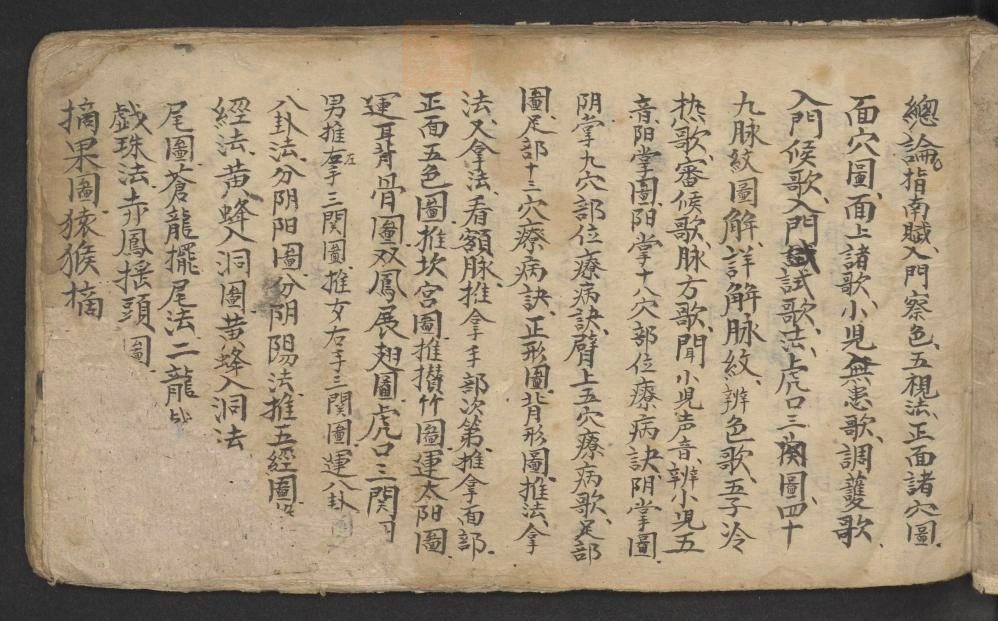 總論、指南賦、入門察色、五視法、正面諸穴圖、
面穴圖、面上諸歌、小児無患歌、調護歌
入門候歌、入門試歌、法上虎口三関圖、四十
九脉紋圖解、詳解脉紋、辨色歌、五子冷
热歌、審候歌、脉方歌、聞小児声音、辨小児五
音、阳掌圖、阳掌十八穴部位療病訣、阴掌圖
阴掌九穴部位療病訣、臂上五穴療病歌、足部
圖、足部十三穴療病訣、正形圖、背形圖、推法、拿
法、又拿法、看額脉、推拿手部次第、推拿面部、
正面五色圖、推坎宮圖、推攅竹圖、運太阳圖、
運耳背骨圖、双鳳展翅圖、虎口三関
男推左手三関圖、推女右手三関圖、運八卦圖
八卦法、分阴阳圖、分阴陽法、推五經圖、
經法、黄蜂入洞圖、黄蜂入洞法
尾圖、蒼龍擺尾法、二龍
戲珠法、赤鳳揺頭圖
摘果圖、猿猴摘